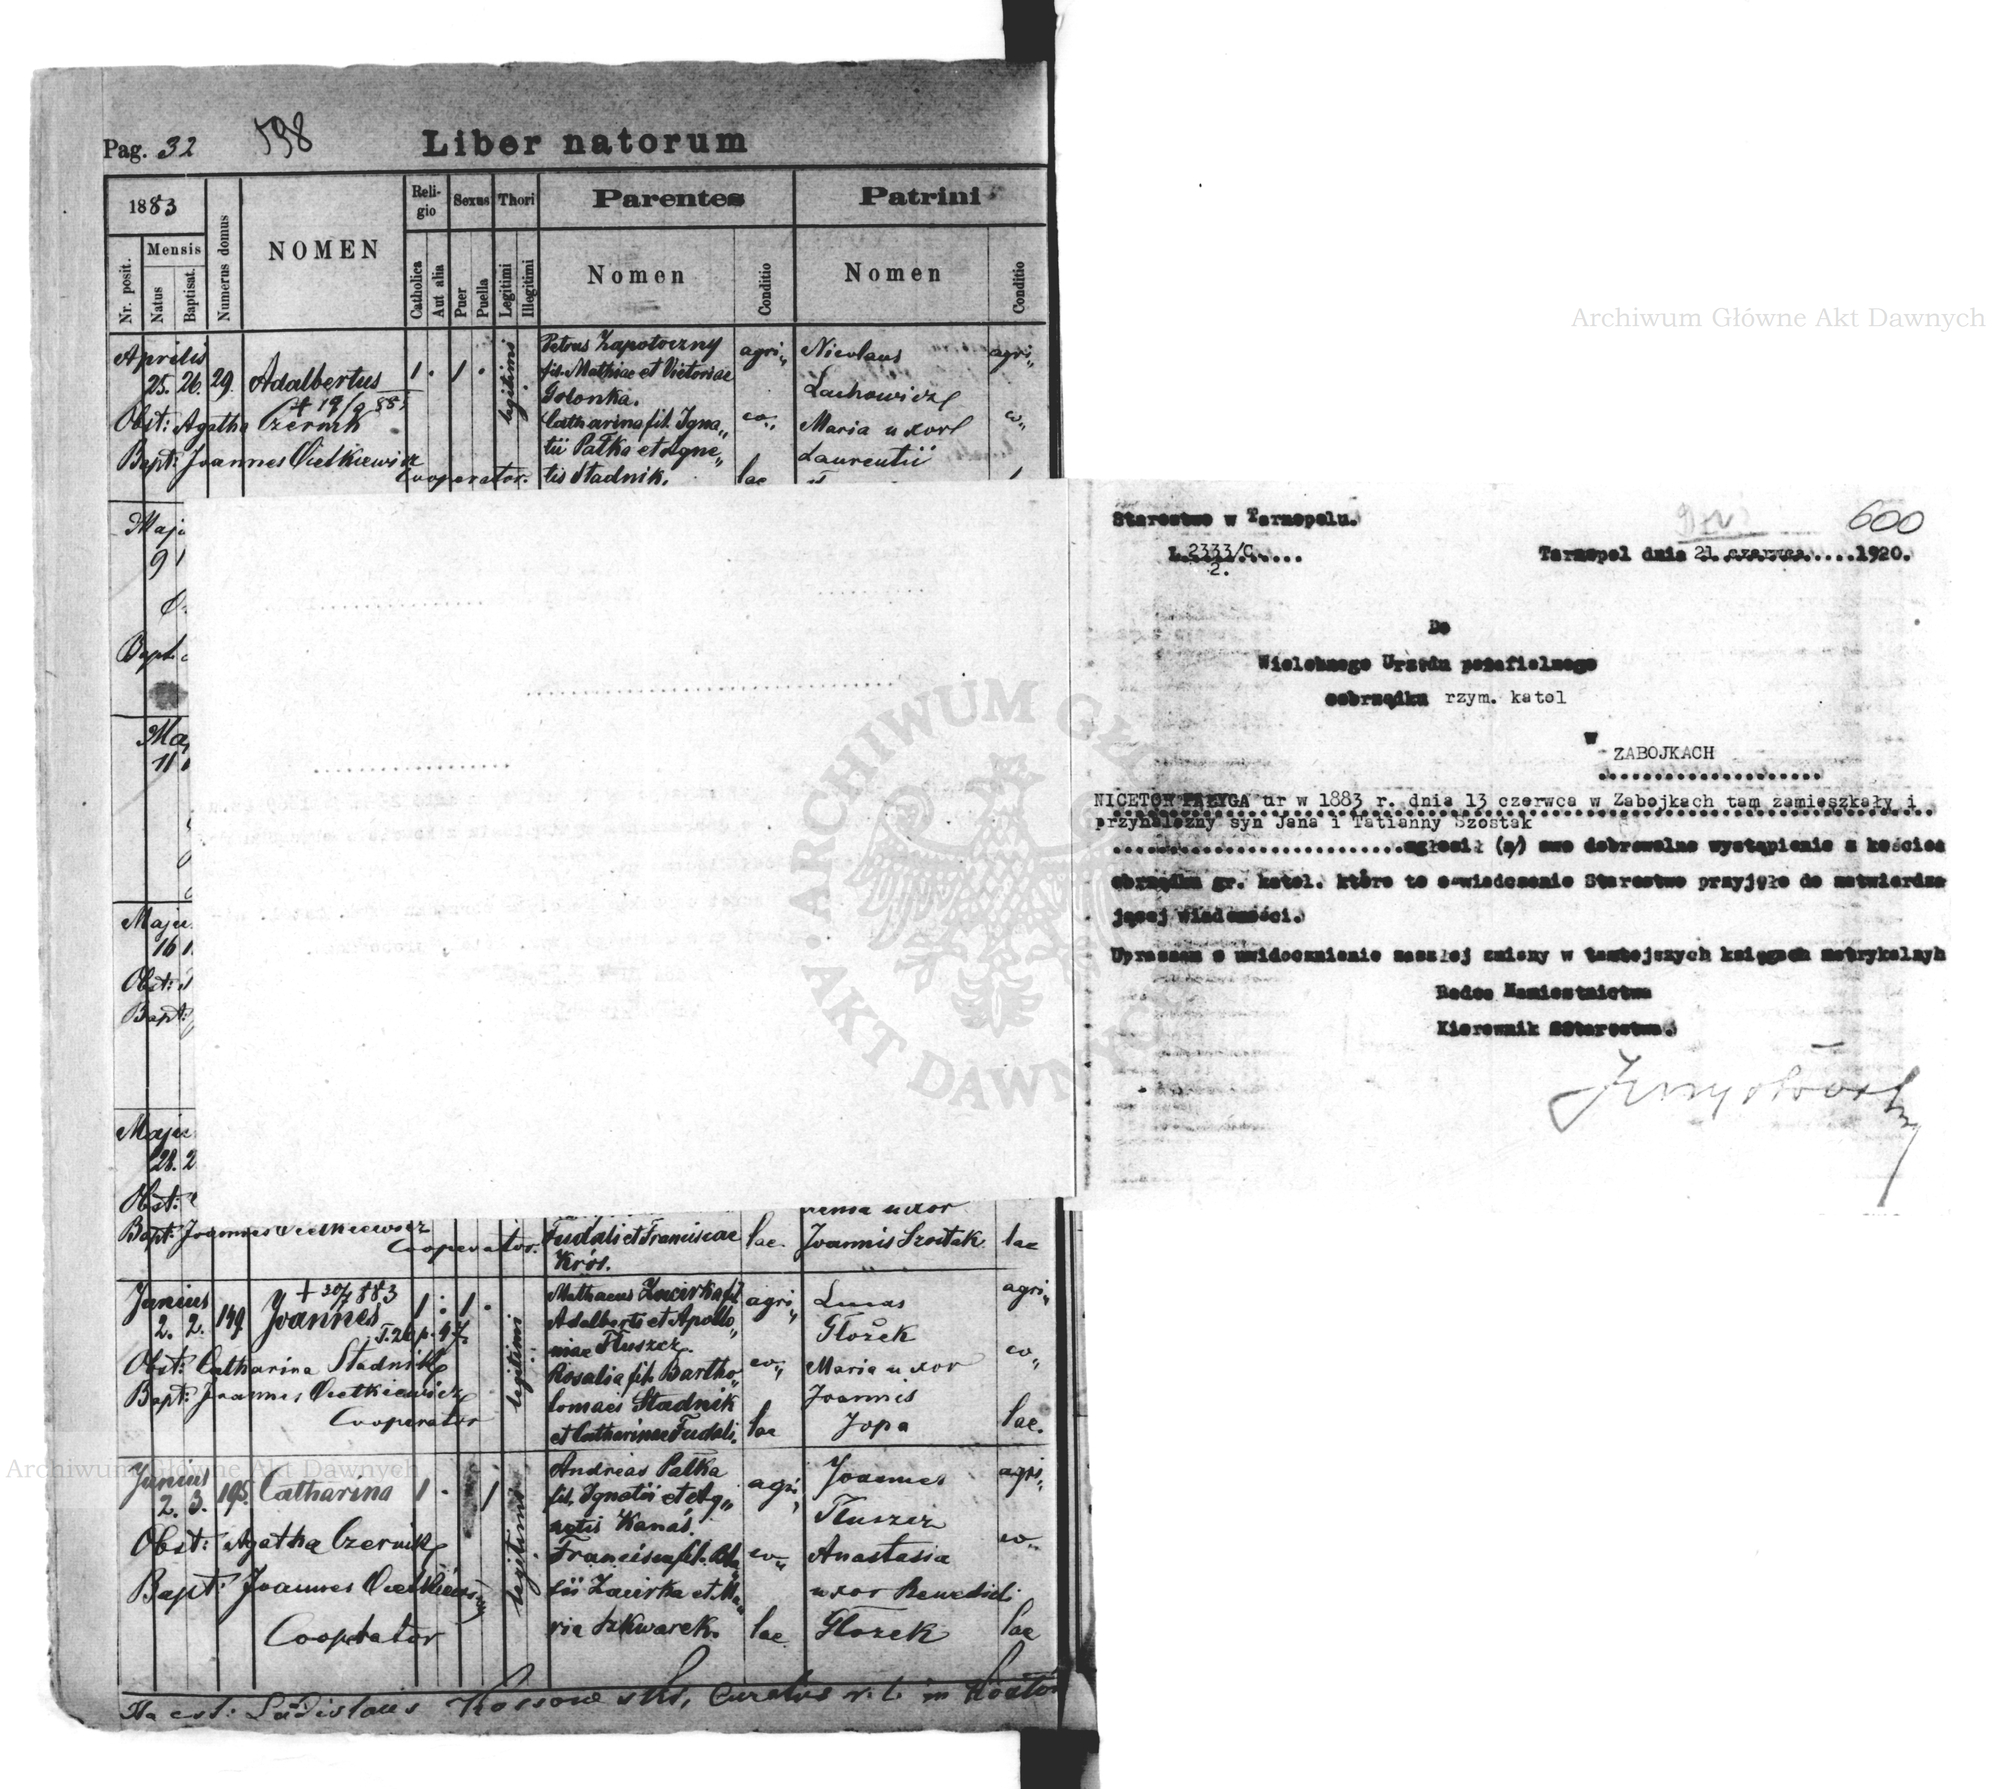 Pag. 32
598
Liber natorum
1883
Mensis
Nr. posit.
Natus
Baptisat.
Numerus domus
NOMEN
Reli-
gio
Catholica
Aut alia
Sexus
Puer
Puella
Thori
Legitimi
Illegitimi
Parentes
Nomen
Conditio
Patrini
Nomen
Conditio
Aprilis
25. 26. 29. Adalbertus 1 . 1 .
legitimi
Obst: Agatha Czernik
Bapt: Joannes
Cooperator.
Petrus Zapotoczny
fil. Mathiae et Victoriae
Golonka.
Catharina fil. Igna„
tii Pałka et Agne„
tis Stadnik.
agri„
co„
lae
Nicolaus
Lachowicz
Maria uxor
Laurentii
agri„
co„
Maji
9
Bapt.
11
Maju
16
Obst:
Bapt:
Maju
28. 2
Obst:
Bapt: Joannes
Cooperator.
Fudali et Franciscae
Król.
lae
uxor
Joannis Szostak
lae
Junius
2. 2. 149 Joannes 1 . 1 .
+ 30/7 883
T. 26 p. 97.
legitimi
Obst: Catharina Stadnik
Bapt: Joannes
Cooperator
Mathaeus Zacirka fil.
Adalberti et Apollo„
niae Tłuszcz.
Rosalia fil. Bartho„
lomaei Stadnik
et Catharinae Fudali.
agri„
co„
lae
Lucas
Głożek
Maria uxor
Joannis
Jopa
agri„
co„
lae.
Junius
2. 3. 195. Catharina 1 . 1
legitimi
Obst: Agatha Czernik
Bapt: Joannes
Cooperator
Andreas Pałka
fil. Ignatii et Ag„
netis Kanas.
Francisca fil.
Zacirka et Ma„
ria Szkwarek.
agri„
co„
lae
Joannes
Tłuszcz
Anastasia
uxor Benedicti
Głozek
agri„
co„
lae
Ita est: Ladislaus Kossowski, Curatus r. l. in
Starostwo w Tarnopolu.
600
L. 2333/C......
2.
Tarnopol dnia 21. czerwca.....1920.
Do
Wielebnego Urzędu parafielnego
oobrządku rzym. katol
w
ZABOJKACH
NICETOR PAŁYGA ur w 1883 r. dnia 13 czerwca w Zabojkach tam zamieszkały i
przynależny syn Jana i Tatianny Szostak
zgłosił (a) swe dobrowolne wystąpienie z kościoa
obrządku gr. katol. które to oświadczenie Starostwo przyjęło do zatwierdza
jącej wiadomości.
Upraszam o uwidocznienie zaszłej zmiany w tamtejszych księgach metrykalnyh
Radca Namiestnictwa
Kierownik SStarostwa.
Archiwum Główne Akt Dawnych
ARCHIWUM GŁÓWNE AKT DAWNYCH
Archiwum Główne Akt Dawnych